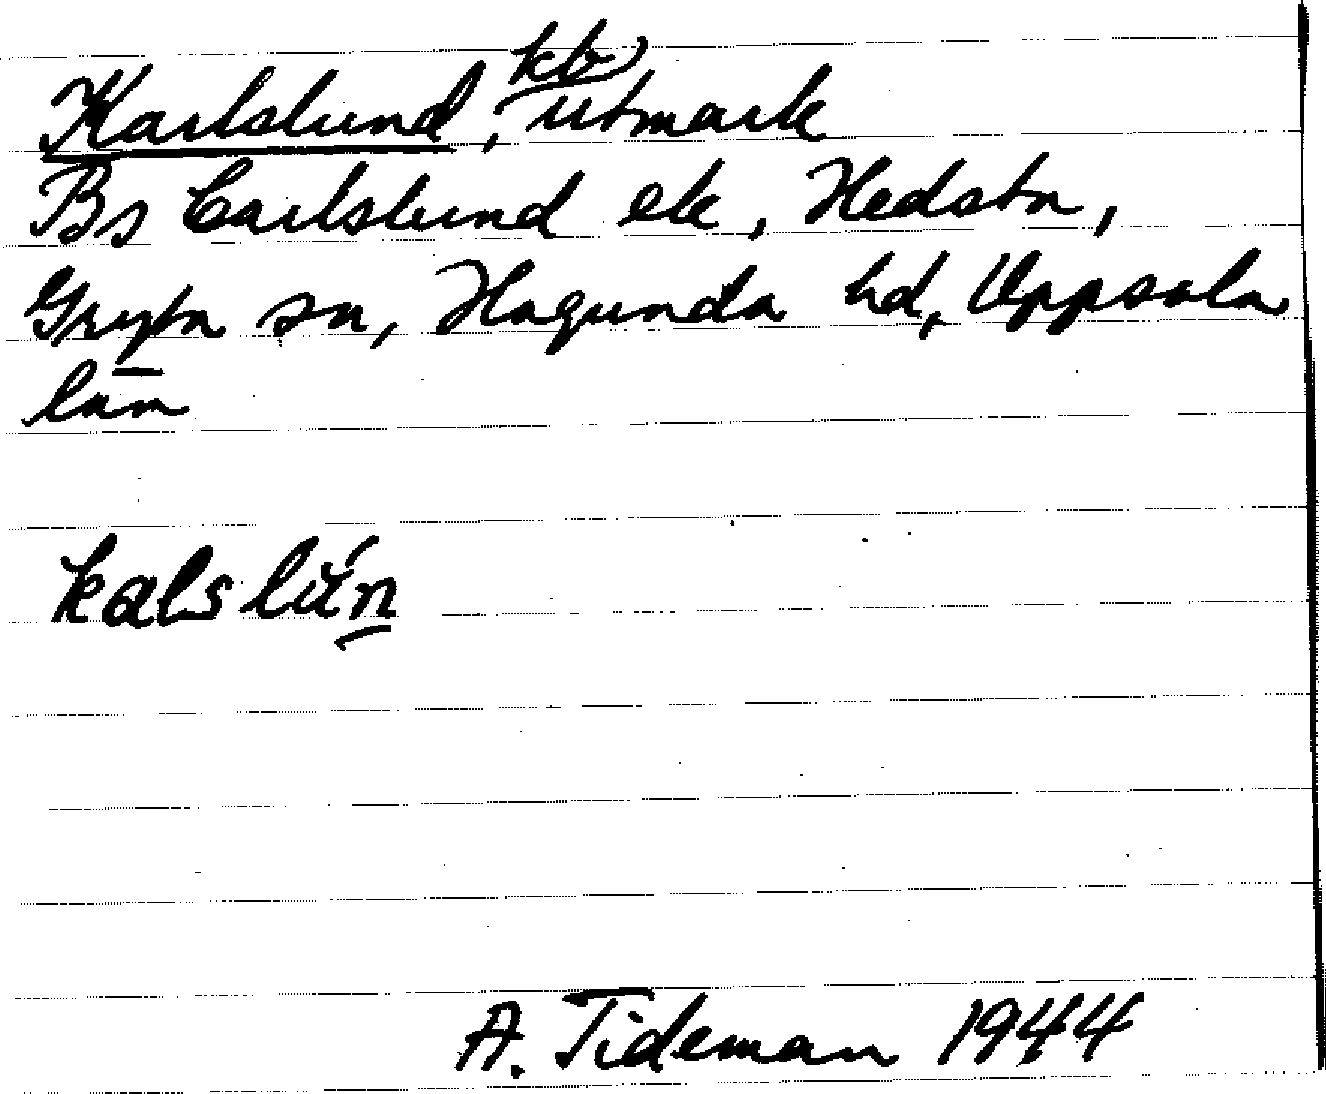 kb
Karlslund, utmark
Bs Carlslund ek, Hedsta,
Gryta sn, Hagunda hd, Uppsala
län
kalslún
A. Tideman 1944